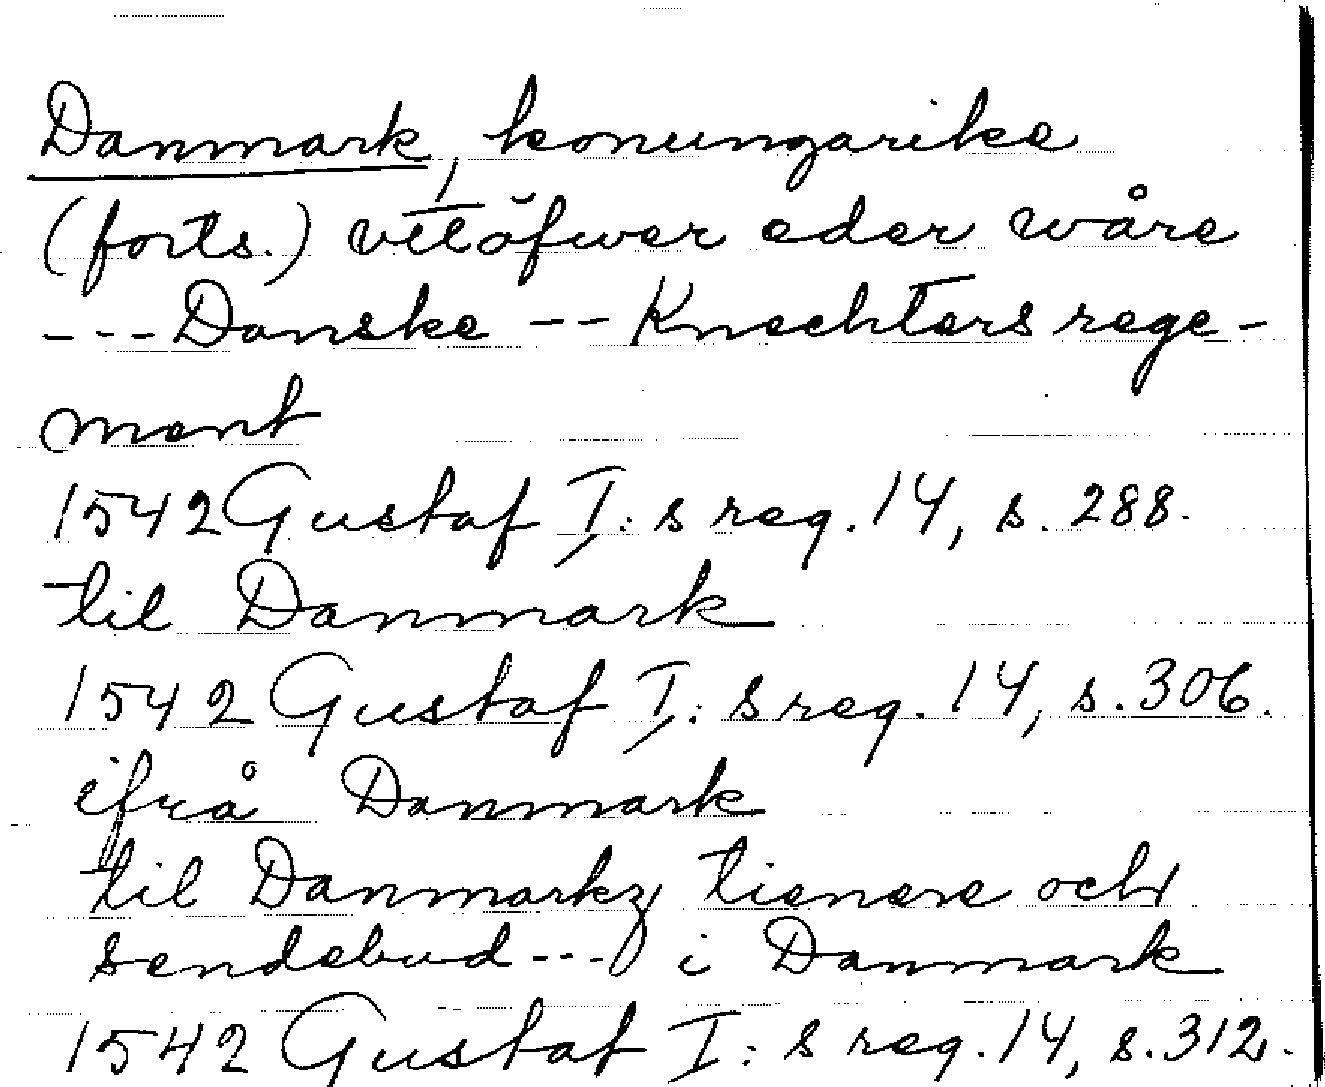 Danmark, konungarike
(forts.) vtöfwer eder wåre
--- Danske -- Knechters rege-
ment
1542 Gustaf I: s reg. 14, s. 288.
til Danmark
1542 Gustaf I: s reg. 14, s. 306.
ifrå Danmark
til Danmarkz tienere och
sendebud --- i Danmark
1542 Gustaf I: s reg. 14, s. 312.